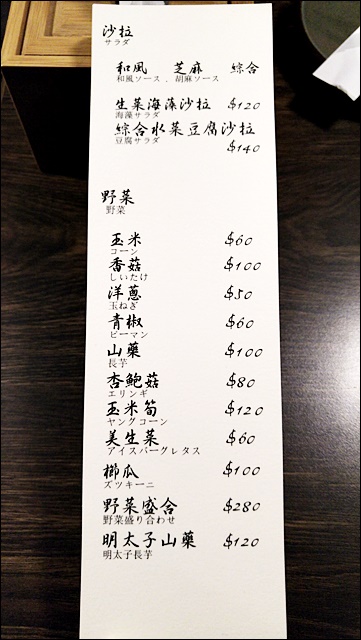 沙拉
サラダ
和風 芝麻 綜合
和風ソース . 胡麻ソース
生菜海藻沙拉 $120
海藻サラダ
綜合水菜豆腐沙拉
豆腐サラダ $140
野菜
野菜
玉米 $60
コーン
香菇 $100
しいたけ
洋蔥 $50
玉ねぎ
青椒 $60
ピーマン
山藥 $100
長芋
杏鮑菇 $80
エリンギ
玉米筍 $120
ヤングコーン
美生菜 $60
アイスバーグレタス
櫛瓜 $100
ズッキーニ
野菜盛合 $280
野菜盛り合わせ
明太子山藥 $120
明太子長芋